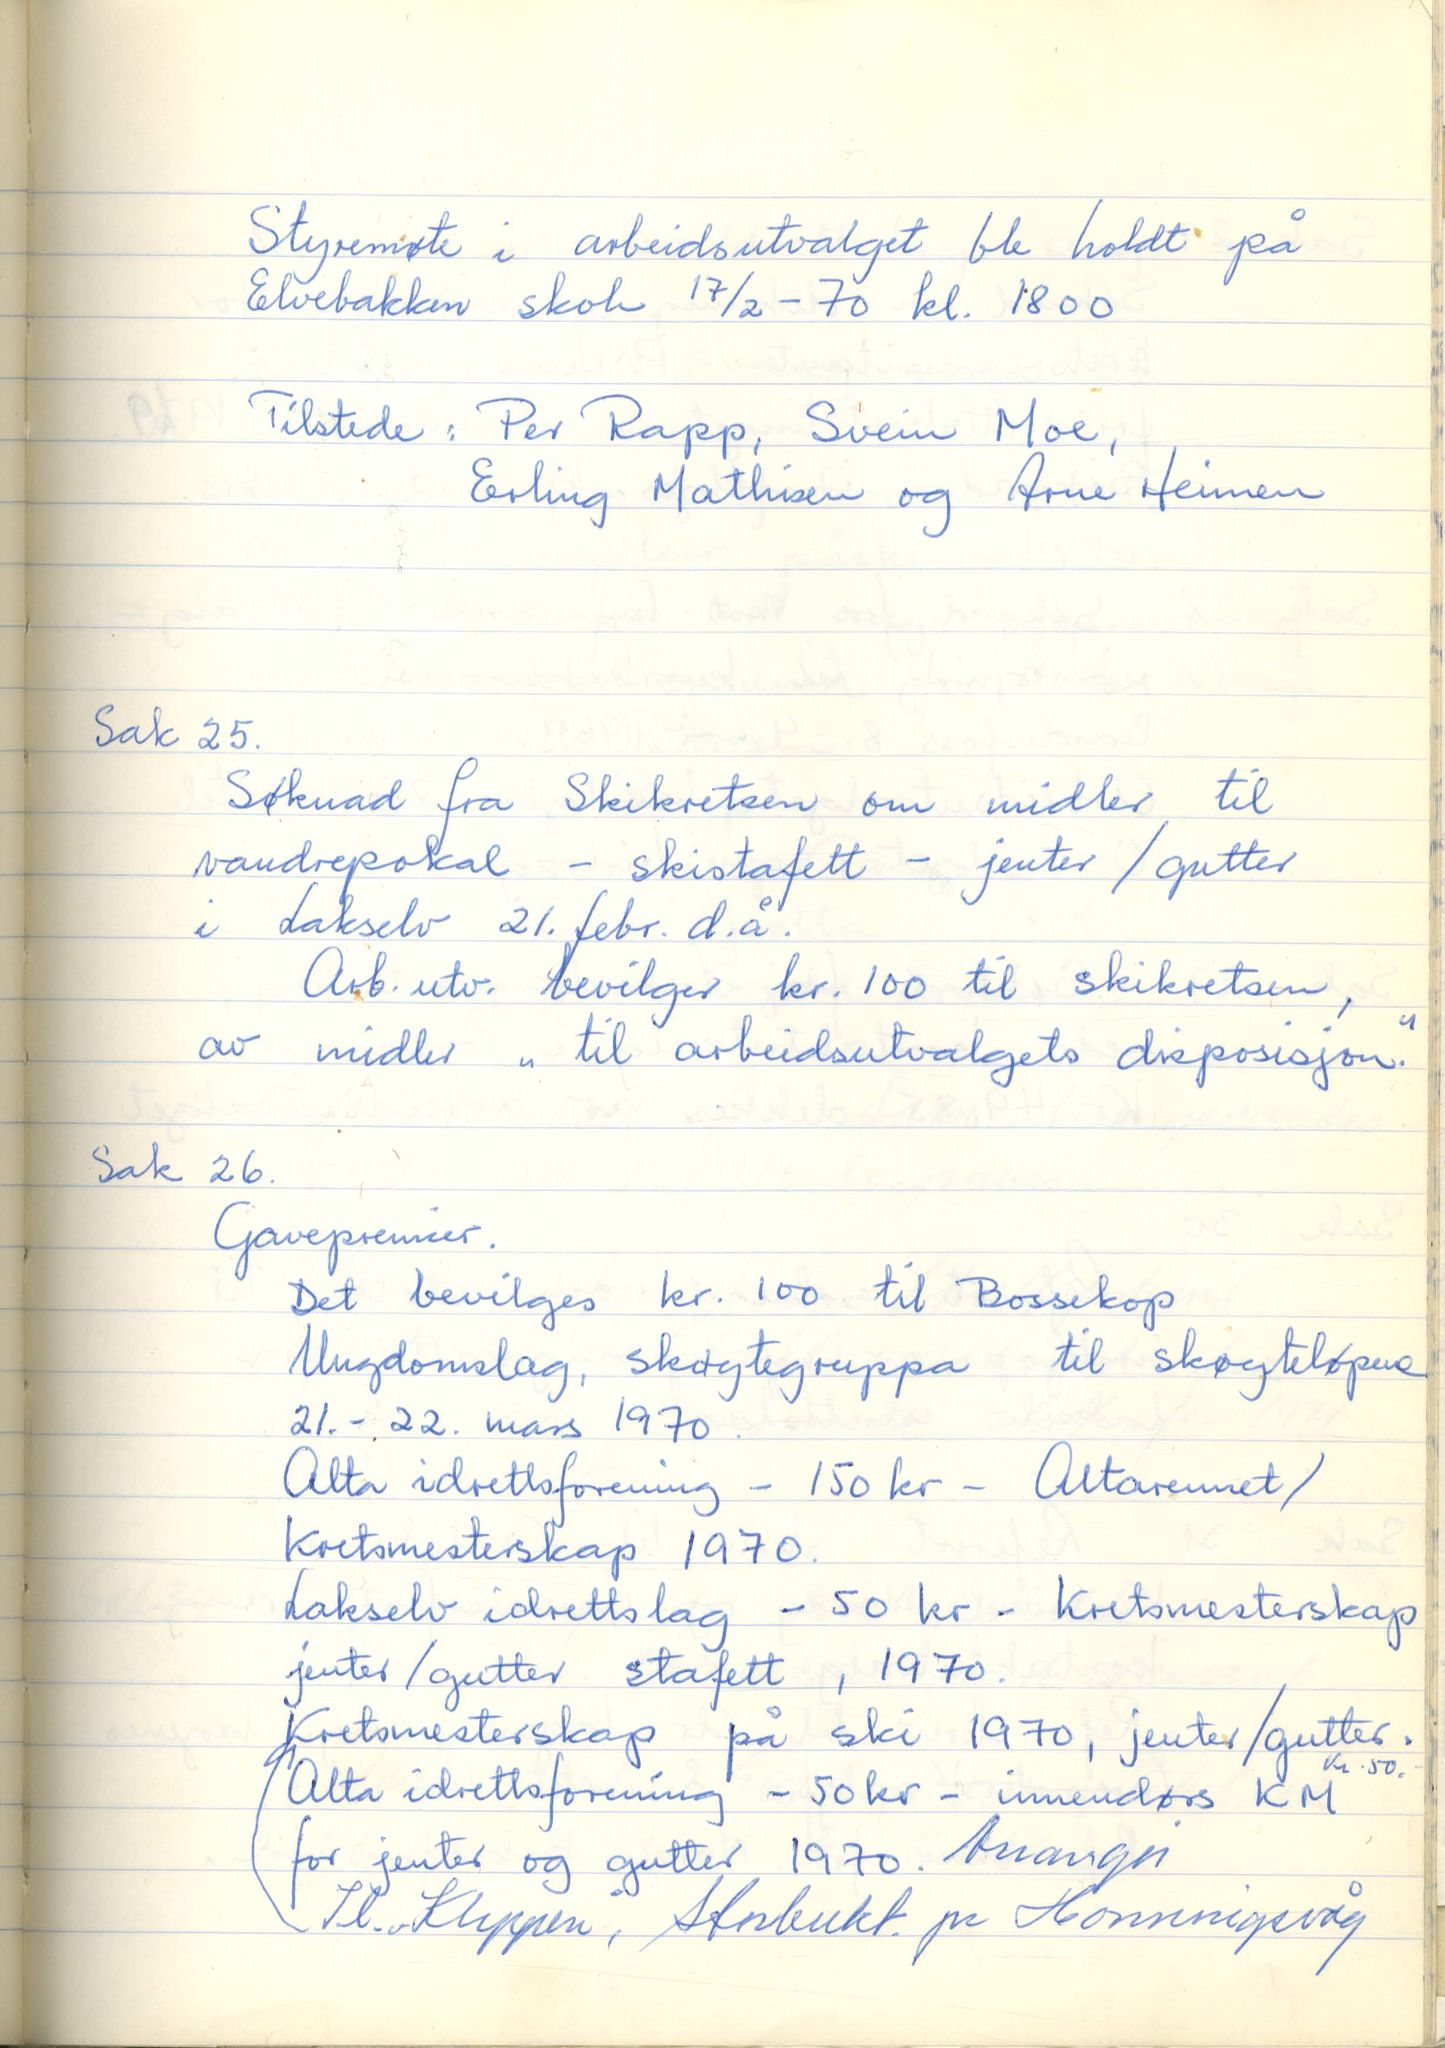 Styremøte i arbeidsutvalget ble holdt på
Elvebakken skole 17/2 - 70 kl. 1800
Tilstede: Per Rapp, Svein Moe,
Erling Mathisen og Arne Heimen
Sak 25.
Søknad fra Skikretsen om midler til
vandrepokal - skistafett - jenter / gutter
i Lakselv 21. febr. d.å.
Arb. utv. bevilger kr. 100 til skikretsen,
av midler „til arbeidsutvalgets disposisjon."
Sak 26.
Gavepremier.
Det bevilges kr. 100 til Bossekop
Ungdomslag, skøytegruppa til skøyteløpene
21. - 22. mars 1970.
Alta idrettsforening - 150 kr - Altarennet/
Kretsmesterskap 1970.
Lakselv idrettslag - 50 kr - Kretsmesterskap
jenter/gutter stafett, 1970.
Kretsmesterskap på ski 1970, jenter/gutter.
kr. 50.-
Alta idrettsforening - 50 kr - innendørs KM
for jenter og gutter 1970. Arrangør
Il. „Klippen", Storbukt. pr Honningsvåg